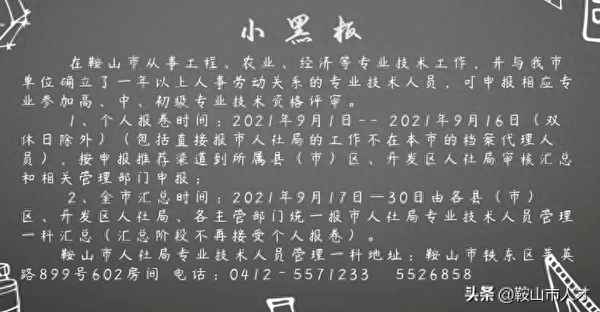 小黑板
在鞍山市从事工程、农业、经济等专业技术工作,并与我市
单位确立了一年以上人事劳动关系的专业技术人员,可申报相应专
业参加高、中、初级专业技术资格评审。
1、个人报卷时间:2021年9月1日--2021年9月16日(双
休日除外)(包括直接报市人社局的工作不在本市的档案代理人
员),按申报推荐渠道到所属县(市)区、开发区人社局审核汇总
和相关管理部门申报;
2、全市汇总时间:2021年9月17日—30日由各县(市)
区、开发区人社局、各主管部门统一报市人社局专业技术人员管理
一科汇总(汇总阶段不再接受个人报卷)。
鞍山市人社局专业技术人员管理一科地址:鞍山市铁东区菁英
路899号602房间 电话:0412-5571233 5526858
头条 @鞍山市人才